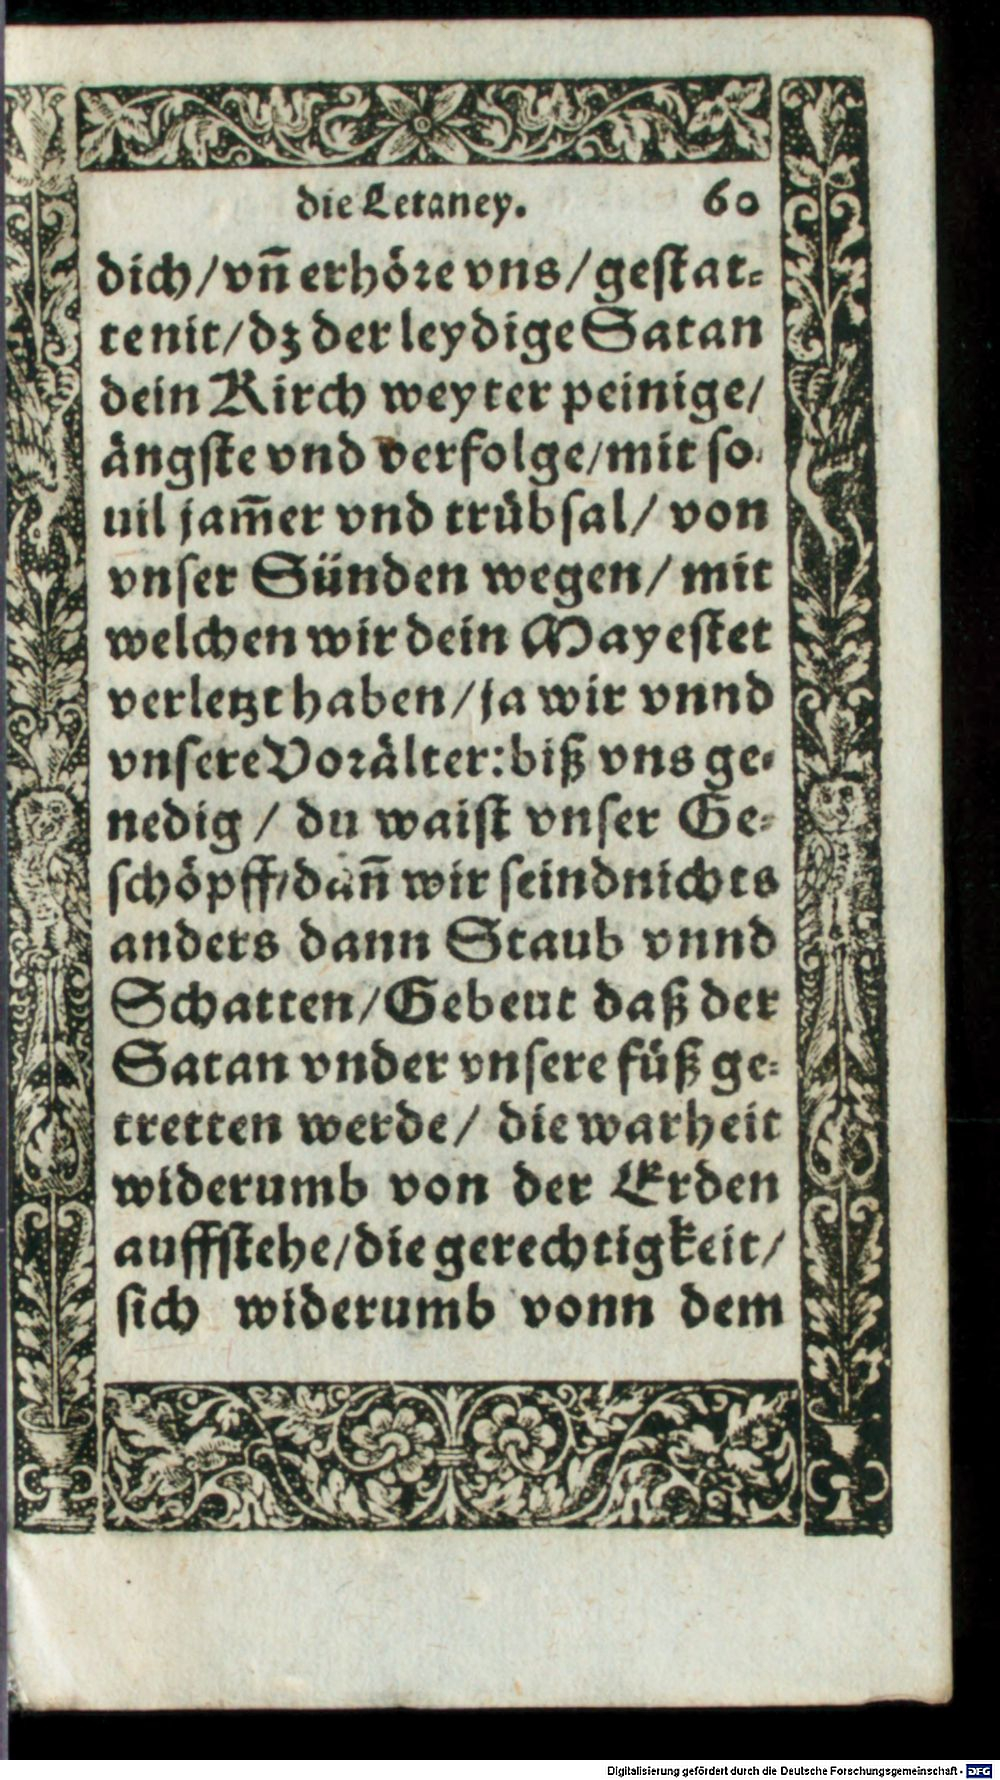 die Letaney. 60
dich/vñ erhöre vns/gestat-
tenit/dz der leydige Satan
dein Kirch weyter peinige/
ängste vnd verfolge/mit so-
uil jam̃er vnd trübsal/ von
vnser Sünden wegen/ mit
welchen wir dein Mayestet
verletzt haben/ja wir vnnd
vnsere Vorälter: biß vns ge-
nedig/ du waist vnser Ge-
schöpff/dañ wir seind nichts
anders dann Staub vnnd
Schatten/Gebeut daß der
Satan vnder vnsere füß ge-
tretten werde/ die warheit
widerumb von der Erden
auffstehe/die gerechtigkeit/
sich widerumb vonn dem
Digitalisierung gefördert durch die Deutsche Forschungsgemeinschaft - DFG